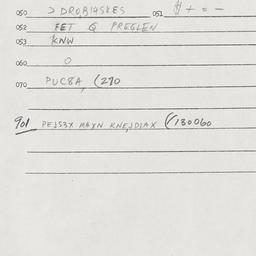 050 > DROBIASKES 051 $ + = -
052 FET Q PREGLEN
053 KNW
060 O
070 PUC8A, (270
901 PEJS3X MAYN KNEJDLAX (130060